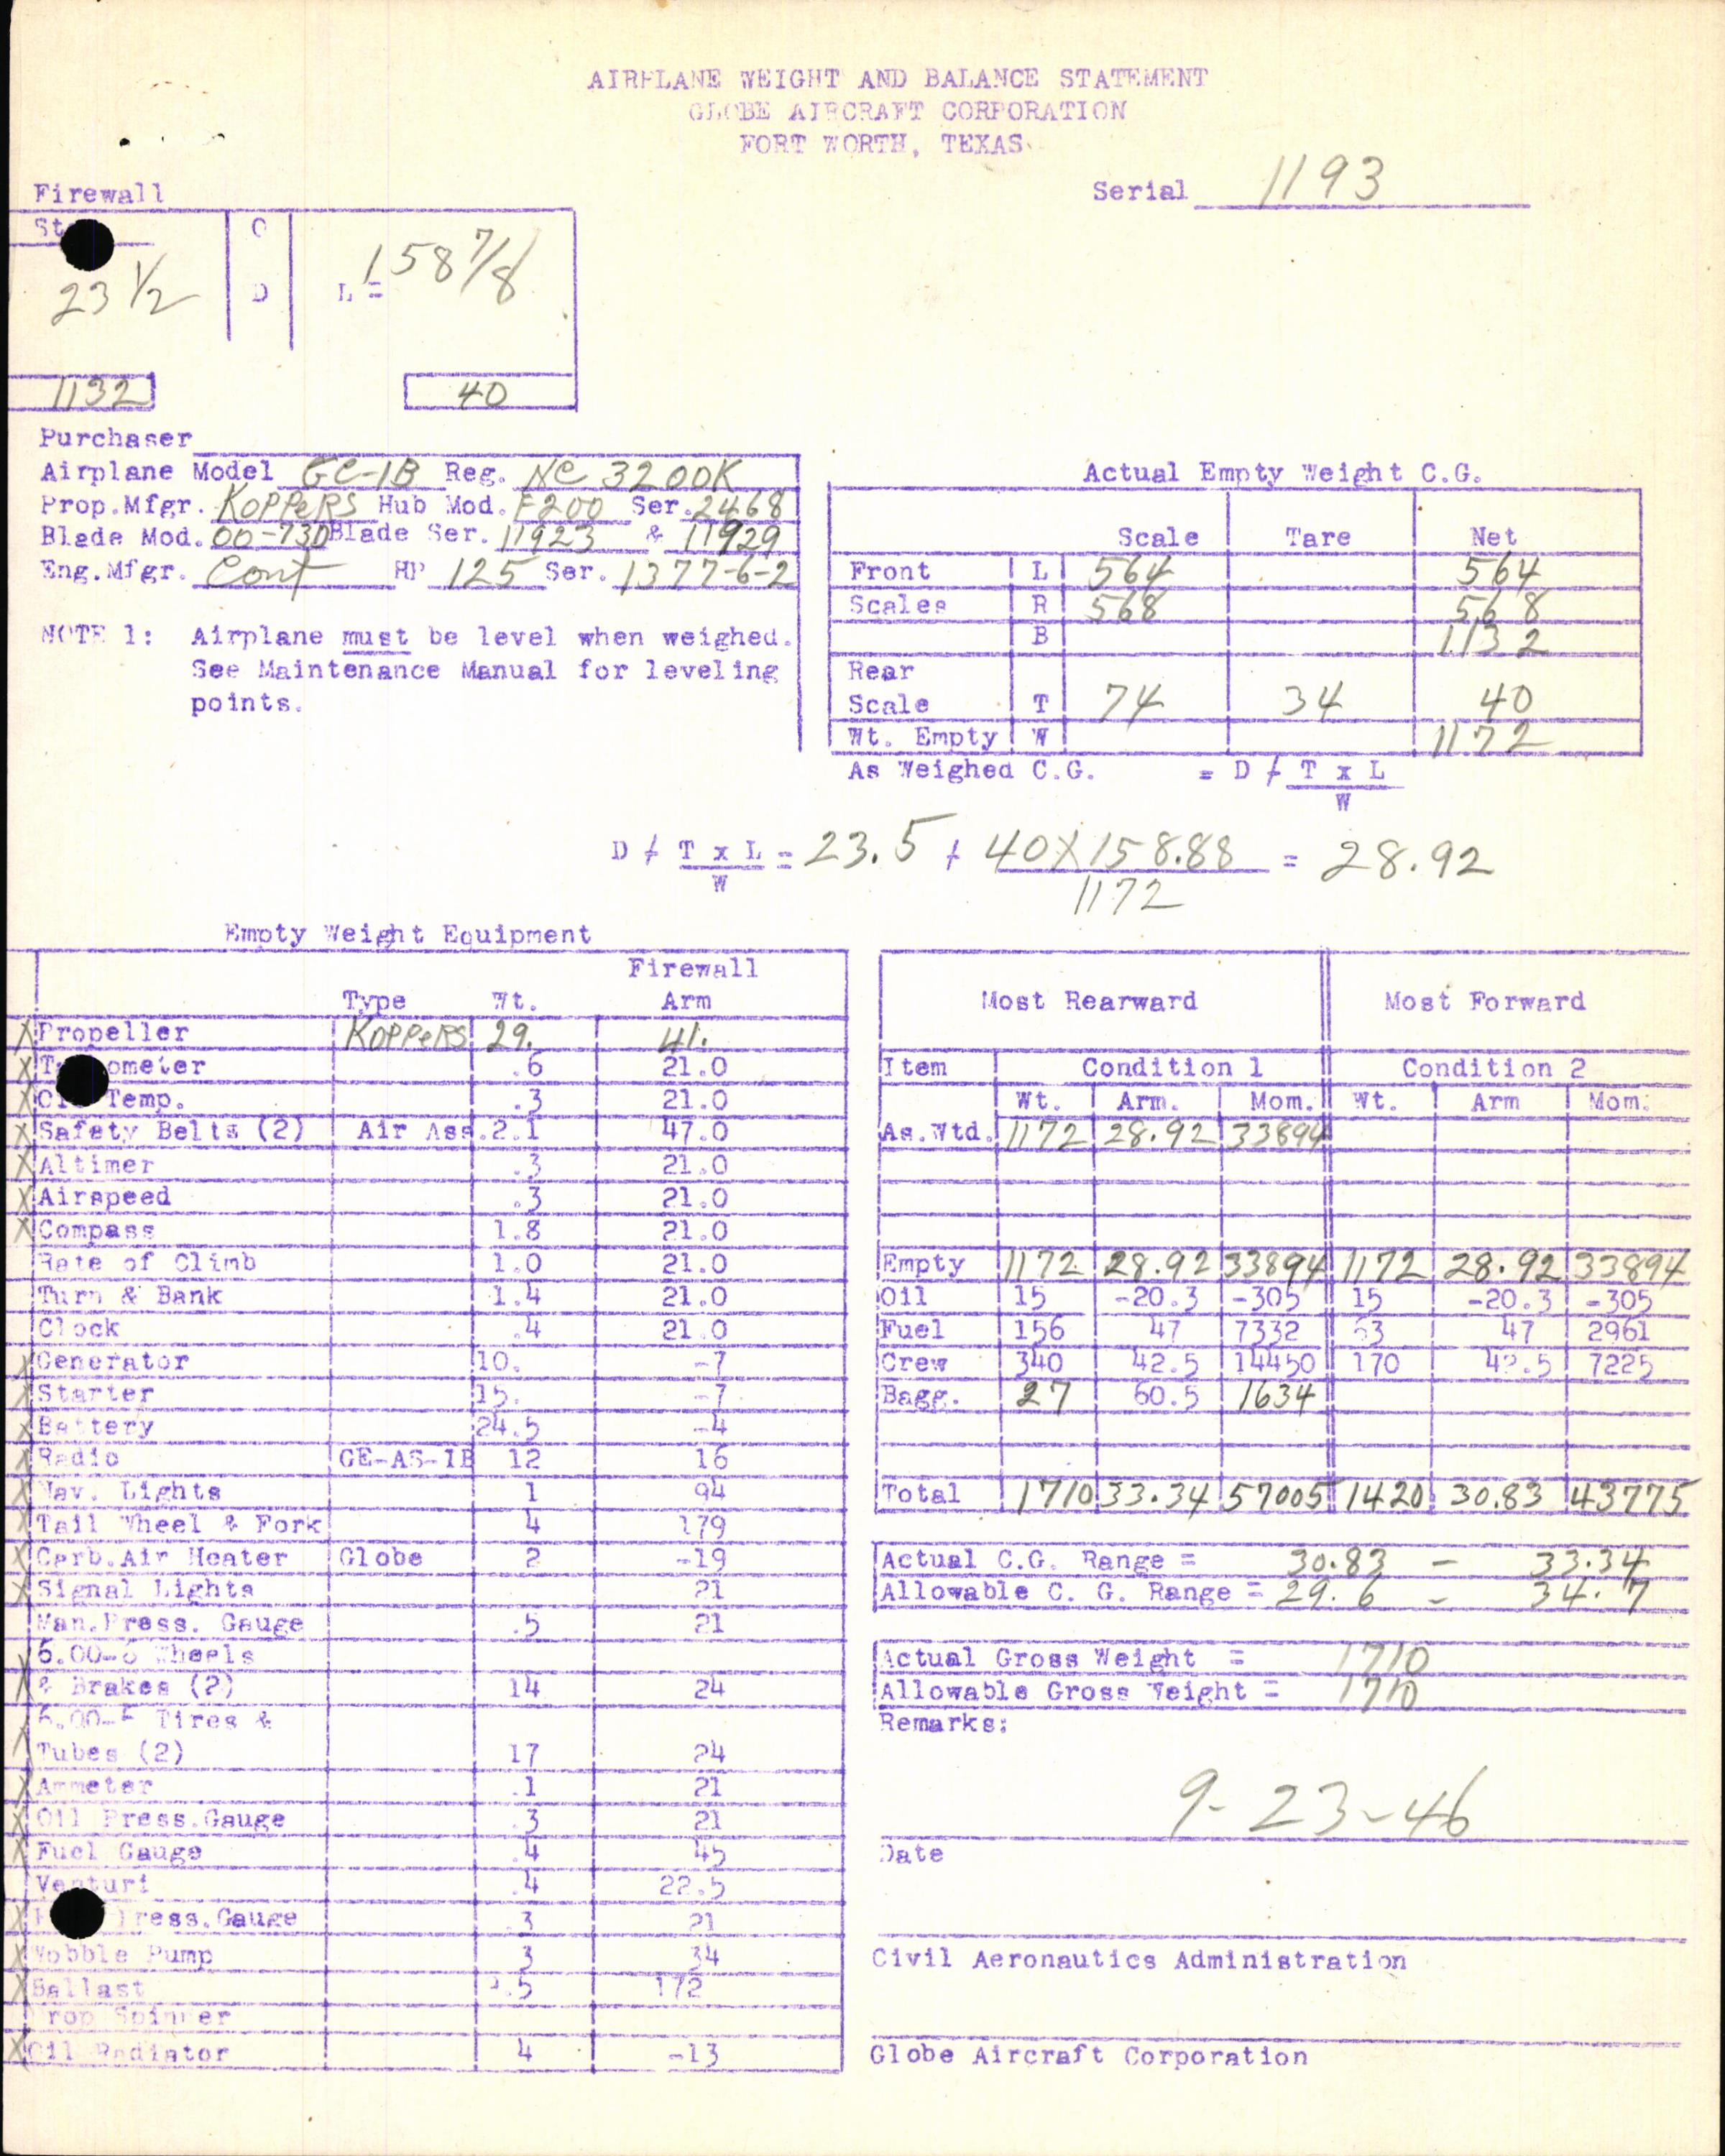 AIRPLANE WEIGHT AND BALANCE STATEMENT
GLOBE AIRCRAFT CORPORATION
FORT WORTH, TEXAS
Serial 1193
Firewall
C
23 1/2 D L = 158 7/8
1132 40
Purchaser
Airplane Model GC-1B Reg. NC 3200K
Prop.Mfgr. KOPPERS Hub Mod. F200 Ser. 2468
Blade Mod. 00-73D Blade Ser. 11923 & 11929
Eng.Mfgr. Cont HP 125 Ser. 1377-6-2
NOTE 1: Airplane must be level when weighed.
See Maintenance Manual for leveling
points.
Actual Empty Weight C.G.
Scale Tare Net
Front L 564 564
Scales R 568 568
B 1132
Rear
Scale T 74 34 40
Wt. Empty W 1172
As Weighed C.G. = D / T x L
W
D / T x L = 23.5 + 40 X 158.88 = 28.92
W 1172
Empty Weight Equipment
Firewall
Type Wt. Arm
X Propeller KOPPERS 29. 41.
X .6 21.0
X Temp. .3 21.0
X Safety Belts (2) Air Ass. 2.1 47.0
X Altimer .3 21.0
X Airspeed .3 21.0
X Compass 1.8 21.0
Rate of Climb 1.0 21.0
Turn & Bank 1.4 21.0
Clock .4 21.0
X Generator 10. -7
X Starter 15. -7
X Battery 24.5 -4
X Radio GE-AS-1B 12 16
X Nav. Lights 1 94
X Tail Wheel & Fork 4 179
X Carb.Air Heater Globe 2 -19
X Signal Lights 21
Man.Press. Gauge .5 21
Wheels
X & Brakes (2) 14 24
Tires &
Tubes (2) 17 24
X Ammeter .1 21
X Oil Press.Gauge .3 21
X Fuel Gauge .4 45
Venturi .4 22.5
X Press.Gauge .3 21
X Wobble Pump 3 34
X Ballast 172
Prop Spinner
X Oil Radiator 4 -13
Most Rearward Most Forward
Item Condition 1 Condition 2
Wt. Arm. Mom. Wt. Arm Mom.
As.Wtd. 1172 28.92 33894
Empty 1172 28.92 33894 1172 28.92 33894
Oil 15 -20.3 -305 15 -20.3 -305
Fuel 156 47 7332 63 47 2961
Crew 340 42.5 14450 170 42.5 7225
Bagg. 27 60.5 1634
Total 1710 33.34 57005 1420 30.83 43775
Actual C.G. Range = 30.83 - 33.34
Allowable C. G. Range = 29.6 - 34.7
Actual Gross Weight = 1710
Allowable Gross Weight = 1710
Remarks:
9-23-46
Date
Civil Aeronautics Administration
Globe Aircraft Corporation